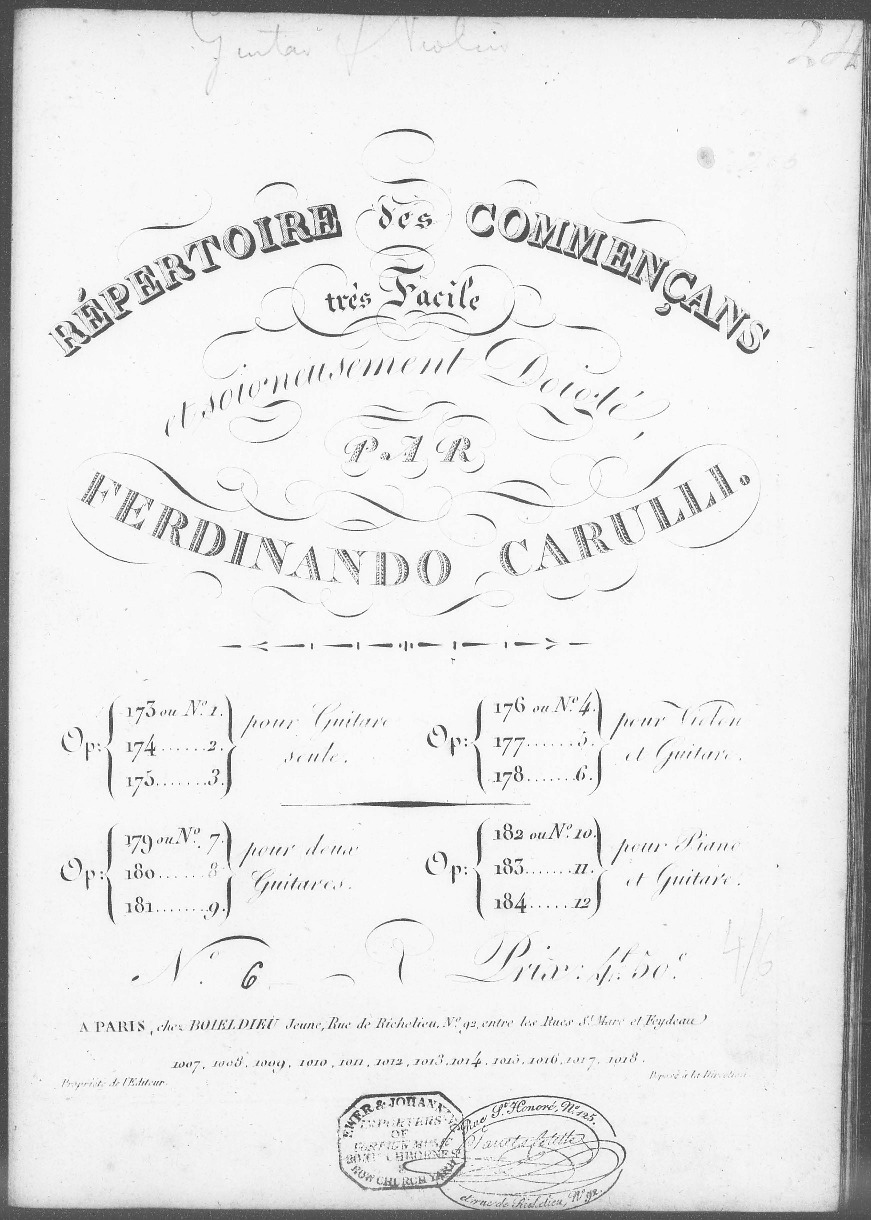 Guitar & Violin
24
RÉPERTOIRE des COMMENÇANS
très Facile
et soigneusement Doigté,
PAR
FERDINANDO CARULLI.
Op: 173 ou Nº 1. pour Guitare
174......2. seule.
175.......3.
Op: 176 ou Nº 4. pour Violon
177......5. et Guitare.
178......6.
Op: 179 ou Nº. 7. pour deux
180......8 Guitares.
181.......9.
Op: 182 ou Nº. 10. pour Piano
183.......11. et Guitare.
184......12
Nº. 6 Prix: 4f. 50c.
4/6
A PARIS, chez BOIELDIEU Jeune, Rue de Richelieu, Nº. 92, entre les Rues St. Marc et Feydeau
1007, 1008, 1009, 1010, 1011, 1012, 1013, 1014, 1015, 1016, 1017, 1018.
Propriété de l'Editeur.
Déposé à la Direction
EWER & JOHANNING
IMPORTERS
OF
FOREIGN MUSIC
BOW CHURCH YARD
Rue St. Honoré, Nº 125.
et rue de Richelieu, Nº 92.